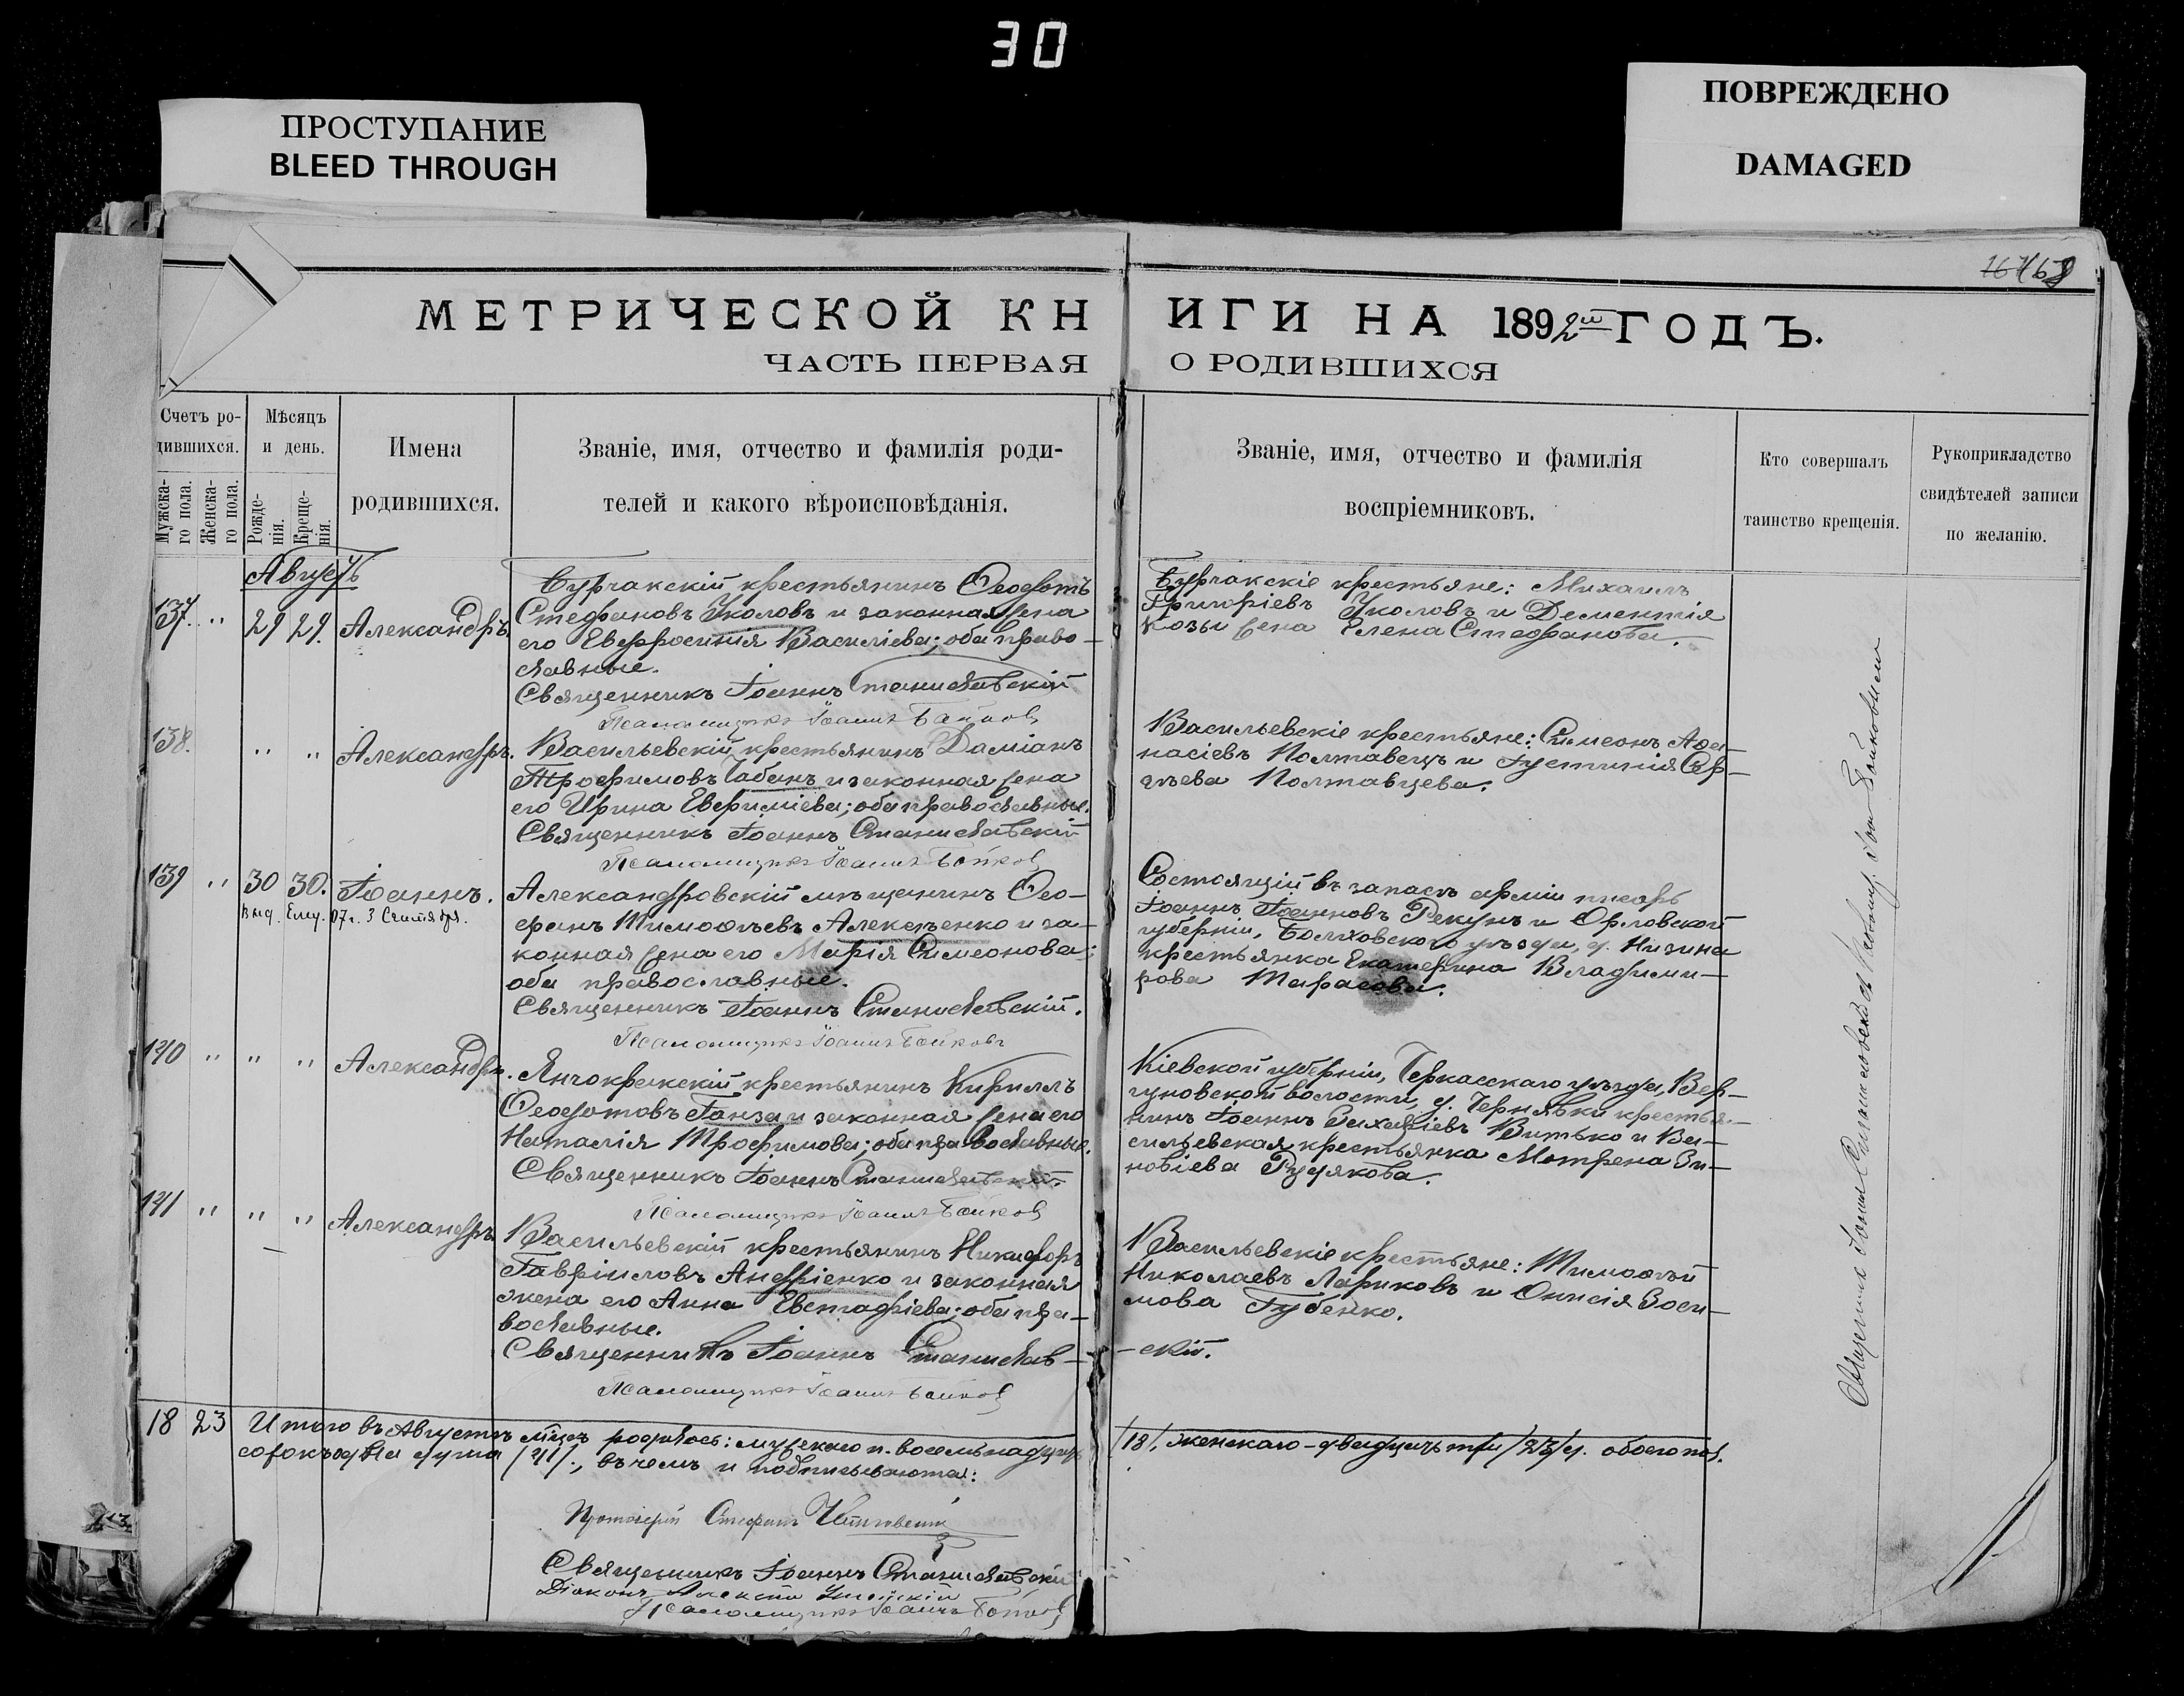 30
ПРОСТУПАНИЕ
BLEED THROUGH
ПОВРЕЖДЕНО
DAMAGED
168
МЕТРИЧЕСКОЙ КН
ИГИ НА 1892й ГОДЪ.
ЧАСТЬ ПЕРВАЯ
О РОДИВШИХСЯ
Счетъ ро-
дившихся.
Мужска-
го пола.
Женска-
го пола.
Мѣсяцъ
и день.
Рожде-
нія.
Креще-
нія.
Имена
родившихся.
Званіе, имя, отчество и фамилія роди-
телей и какого вѣроисповѣданія.
Званіе, имя, отчество и фамилія
воспріемниковъ.
Кто совершалъ
таинство крещенія.
Рукоприкладство
свидѣтелей записи
по желанію.
Августъ
137. " 29 29. Александръ.
Бурчакскій крестьянинъ Ѳеодотъ
Стефановъ Уколовъ и законная жена
его Евфросинія Василіева; оба право-
славные.
Священникъ Іоаннъ Станиславскій
Псаломщикъ Іоаннъ Бойковъ
Бурчакскіе крестьяне: Михаилъ
Григоріевъ Уколовъ и Дементія
Козы жена Елена Стефанова.
138. " " Александръ.
Васильевскій крестьянинъ Даміанъ
Трофимовъ Чабанъ и законная жена
его Ирина Евфиміева; оба православные.
Священникъ Іоаннъ Станиславскій
Псаломщикъ Іоаннъ Бойковъ
Васильевскіе крестьяне: Симеонъ Аѳа-
насіевъ Полтавецъ и Іустинія Сер-
гѣева Полтавцева.
139 " 30 30. Іоаннъ.
Выд. Ему. 07 г. 3 Сентября.
Александровскій мѣщанинъ Ѳео-
фанъ Тимоѳѣевъ Алексѣенко и за-
конная жена его Марія Симеонова;
оба православные.
Священникъ Іоаннъ Станиславскій.
Псаломщикъ Іоаннъ Бойковъ
Состоящій въ запасѣ арміи писарь
Іоаннъ Іоанновъ Рекунъ и Орловской
губерніи, Болховского уѣзда, д. Низина
крестьянка Екатерина Владими-
рова Тарасова.
140 " " " Александръ.
Янчокракскій крестьянинъ Кириллъ
Ѳеодотовъ Ганза и законная жена его
Наталія Трофимова; оба православные.
Священникъ Іоаннъ Станиславскій.
Псаломщикъ Іоаннъ Бойковъ
Кіевской губерніи, Черкасскаго уѣзда,
волости, д. Чернявки крестья-
нинъ Іоаннъ Захаріевъ Витько и Ва-
сильевская крестьянка Мотрена Зи-
новіева Рудякова.
141 " " " Александръ
Васильевскій крестьянинъ Никифоръ
Гавріиловъ Андріенко и законная
жена его Анна Евстафіева; оба пра-
вославные.
Священникъ Іоаннъ Станислав-
-скій.
Псаломщикъ Іоаннъ Бойковъ
Васильевскіе крестьяне: Тимоѳѣй
Николаевъ Лариковъ и Онисія Зоси-
мова Губенко.
Священник Іоанн Станиславский с Псаломщ. Іоан. Бойковымъ
18 23 Итого въ Августѣ мѣсяцѣ родилось: мужскаго п. восемьнадцать
/18/. женскаго - двадцать три /23/ обоего пол.
сорокъ душа /41/., въ чемъ и подписываются:
Протоіерей Стефанъ
Священникъ Іоаннъ Станиславскій
Діаконъ Алексій
Псаломщикъ Іоаннъ Бойковъ